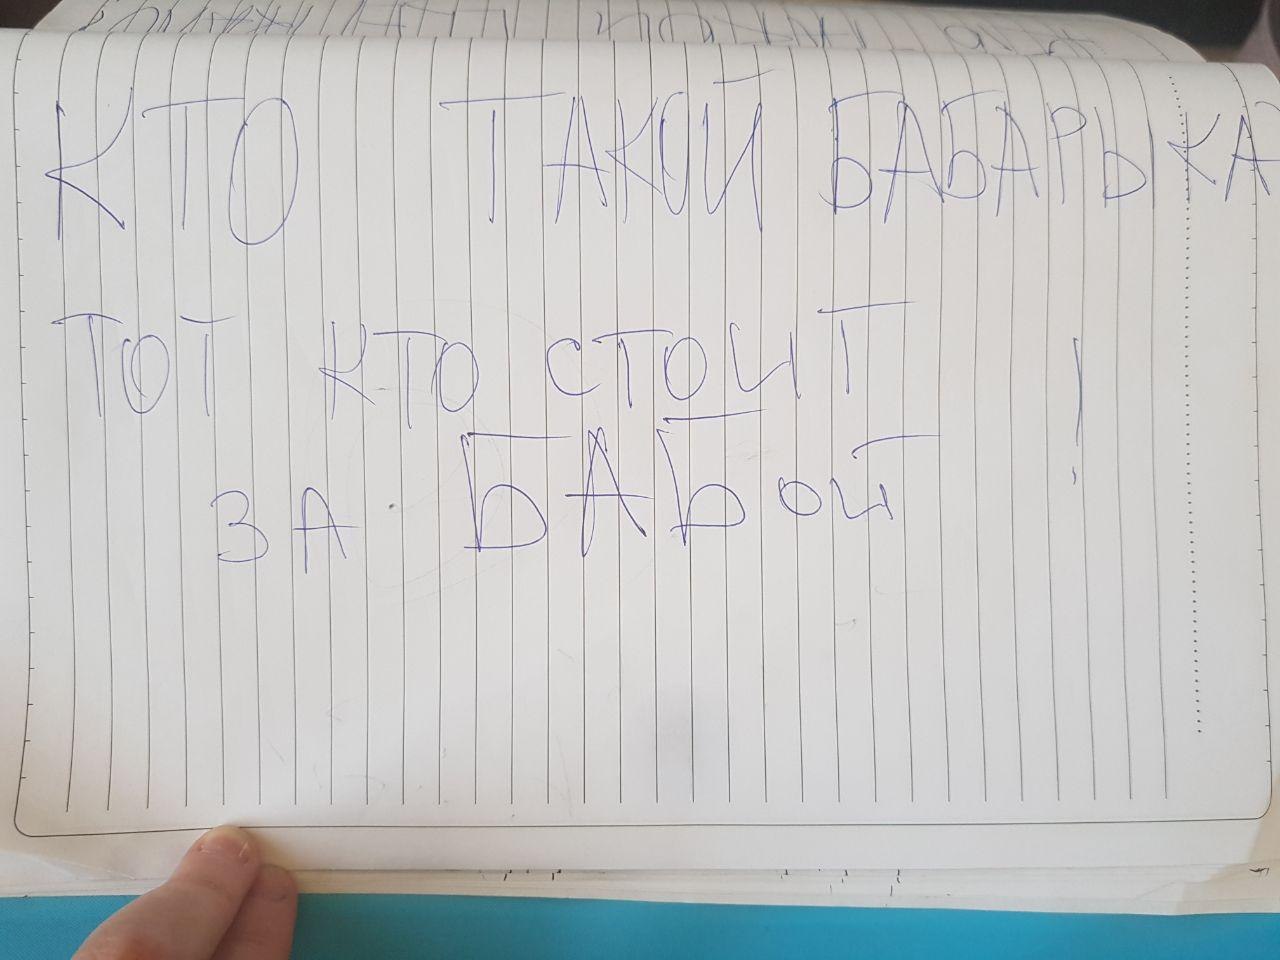 КТО ТАКОЙ БАБАРЫКА?
ТОТ КТО СТОИТ
ЗА БАБОЙ !